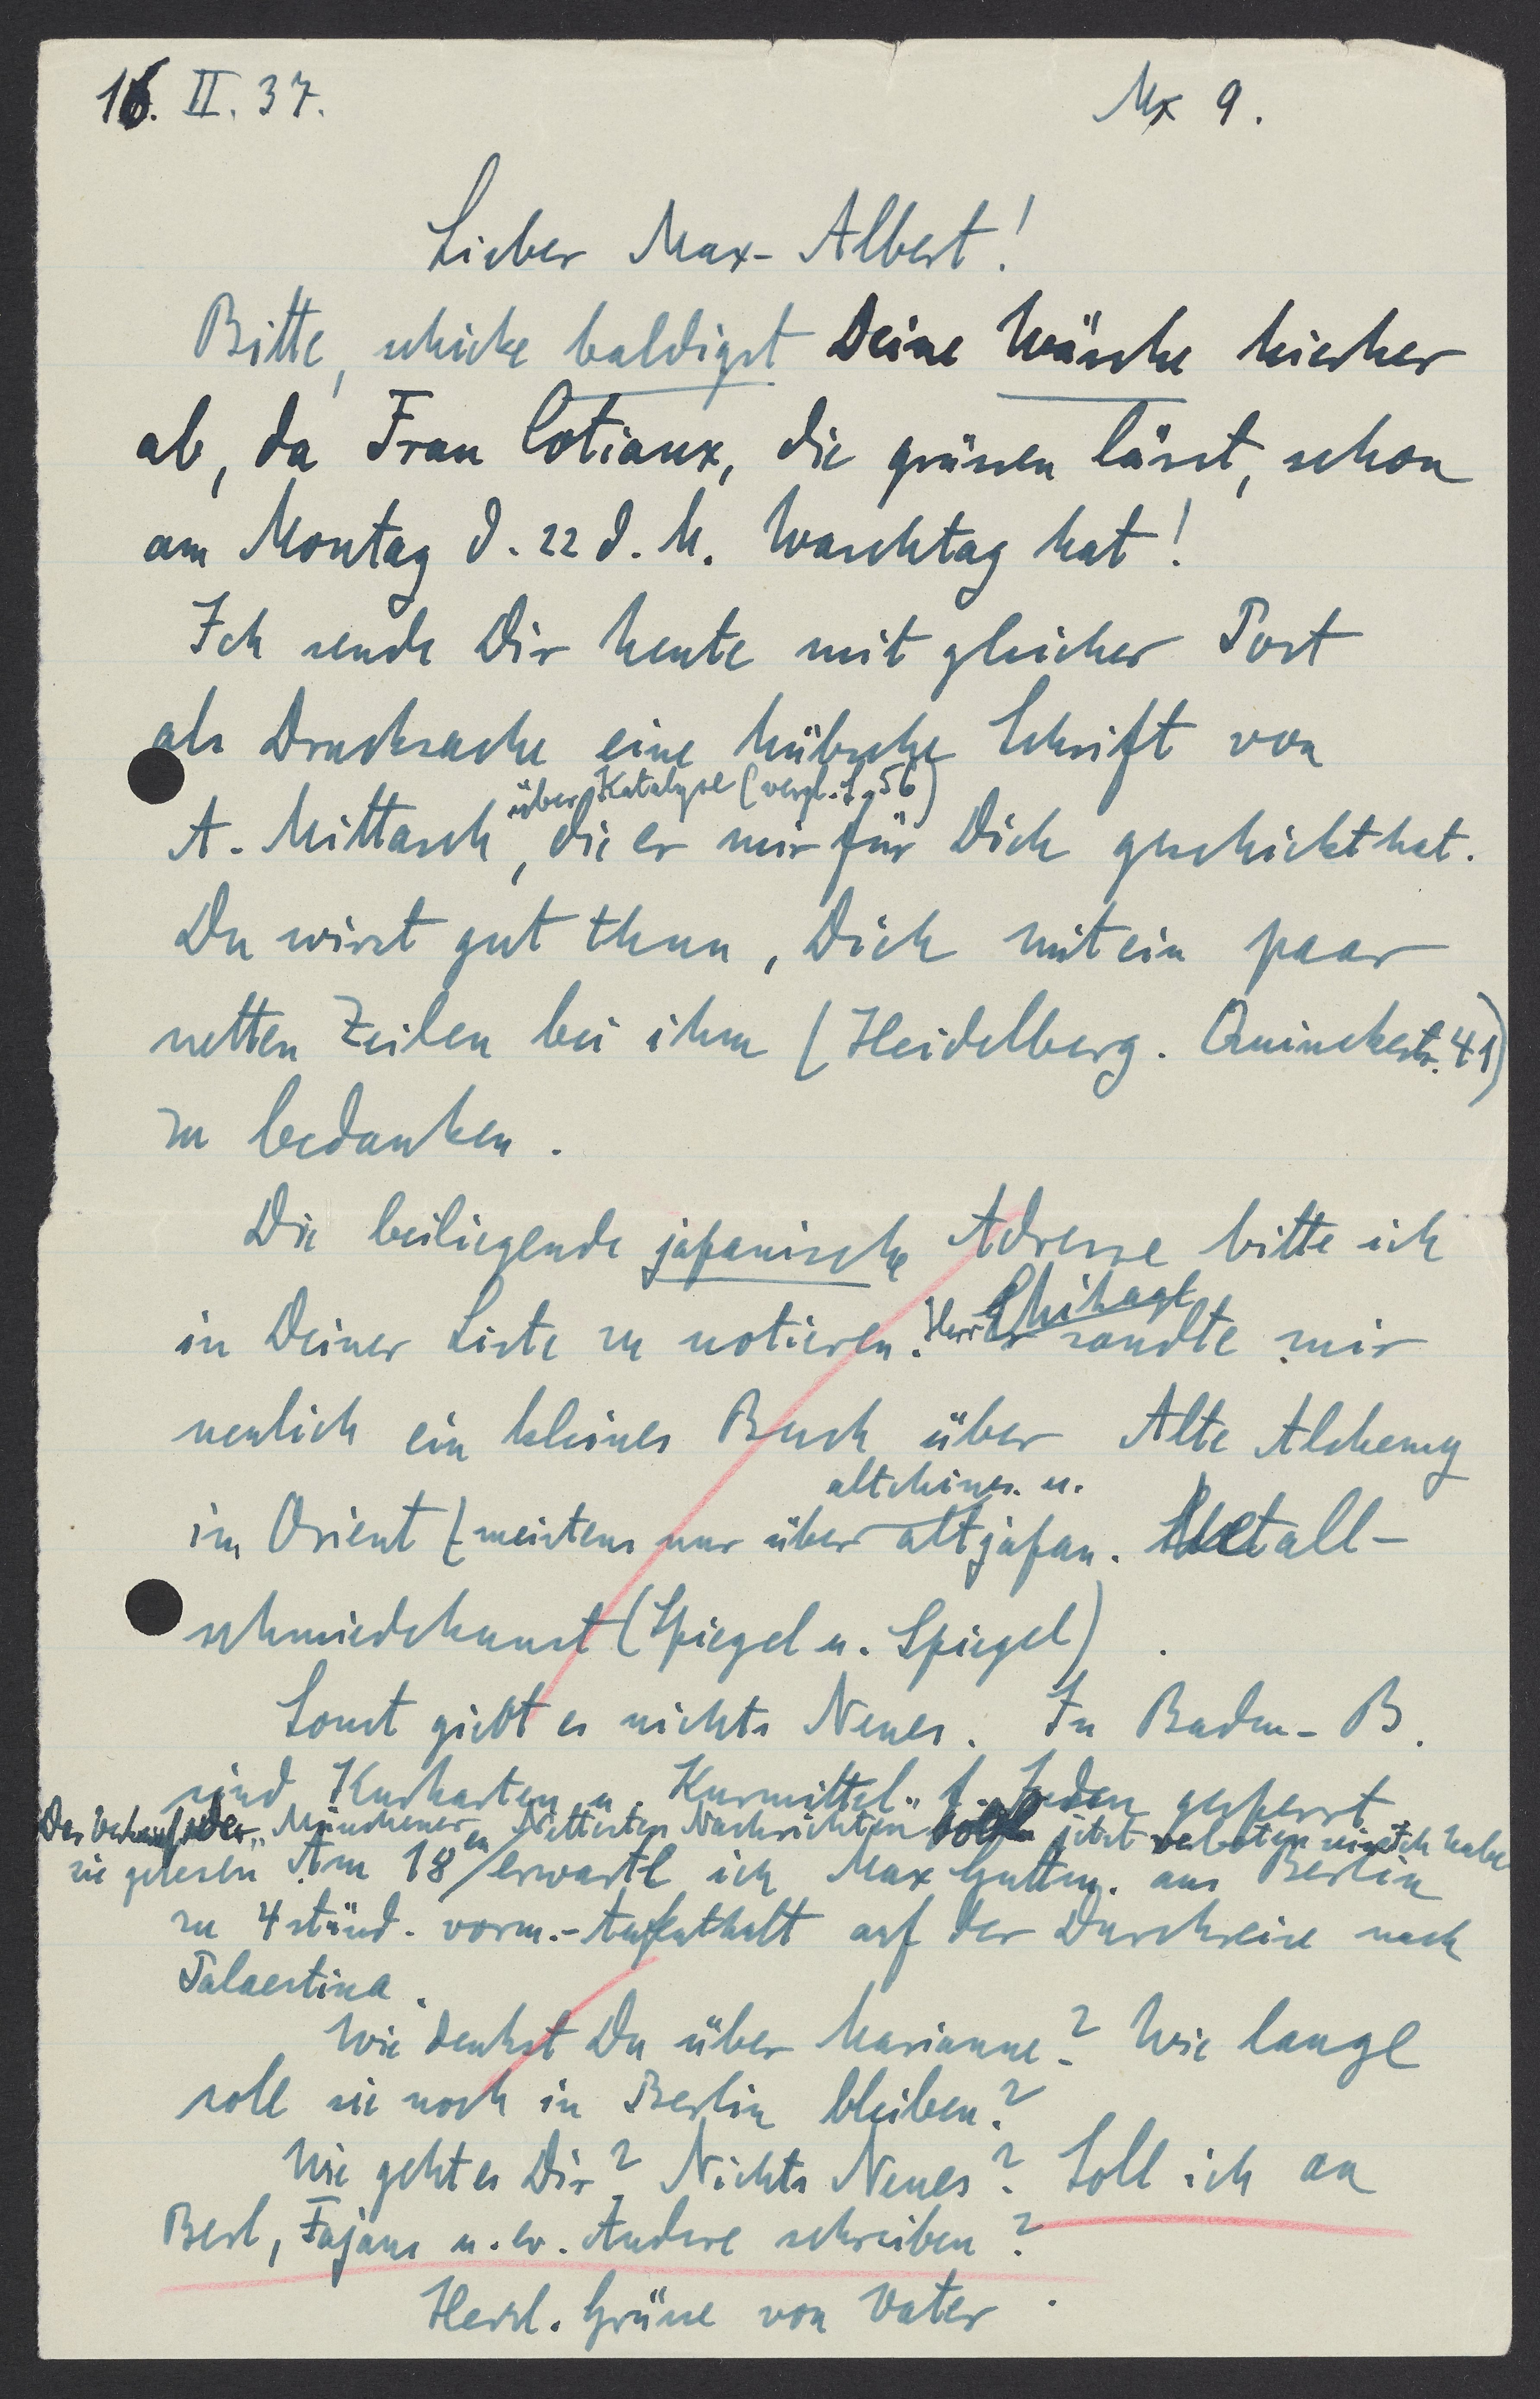 16. II. 37. Mx 9.
Lieber Max-Albert!
Bitte, schicke baldigst Deine Wäsche hierher
ab, da Frau Cotiaux, die grüssen lässt, schon
am Montag d. 22 d. M. Waschtag hat!
Ich sende Dir heute mit gleicher Post
als Drucksache eine hübsche Schrift von
über Katalyse (vergl. S. 56)
A. Mittasch, die er mir für Dich geschickt hat.
Du wirst gut thun, Dich mit ein paar
netten Zeilen bei ihm (Heidelberg. Quinckestr. 41)
zu bedanken.
Die beiliegende japanische Adresse bitte ich
in Deiner Liste zu notieren. Herr Chikashige sandte mir
neulich ein kleines Buch über Alte Alchemy
altchines. u.
im Orient (meistens nur über altjapan. Metall-
schmiedekunst (Spiegel u. Spiegel).
Sonst giebt es nichts Neues. In Baden-B.
sind Kurkarten u. Kurmittel f. Juden gesperrt.
Der Verkauf der "Münchener Neuesten Nachrichten" soll jetzt verboten sein. Ich habe
sie gelesen. Am 18en erwarte ich Max Guttm. aus Berlin
zu 4 stünd. vorm.-Aufenthalt auf der Durchreise nach
Palaestina.
Wie denkst Du über Marianne? Wie lange
soll sie noch in Berlin bleiben?
Wie geht es Dir? Nichts Neues? Soll ich an
Berl, Fajans u. ev. Andere schreiben?
Herzl. Grüsse von Vater.